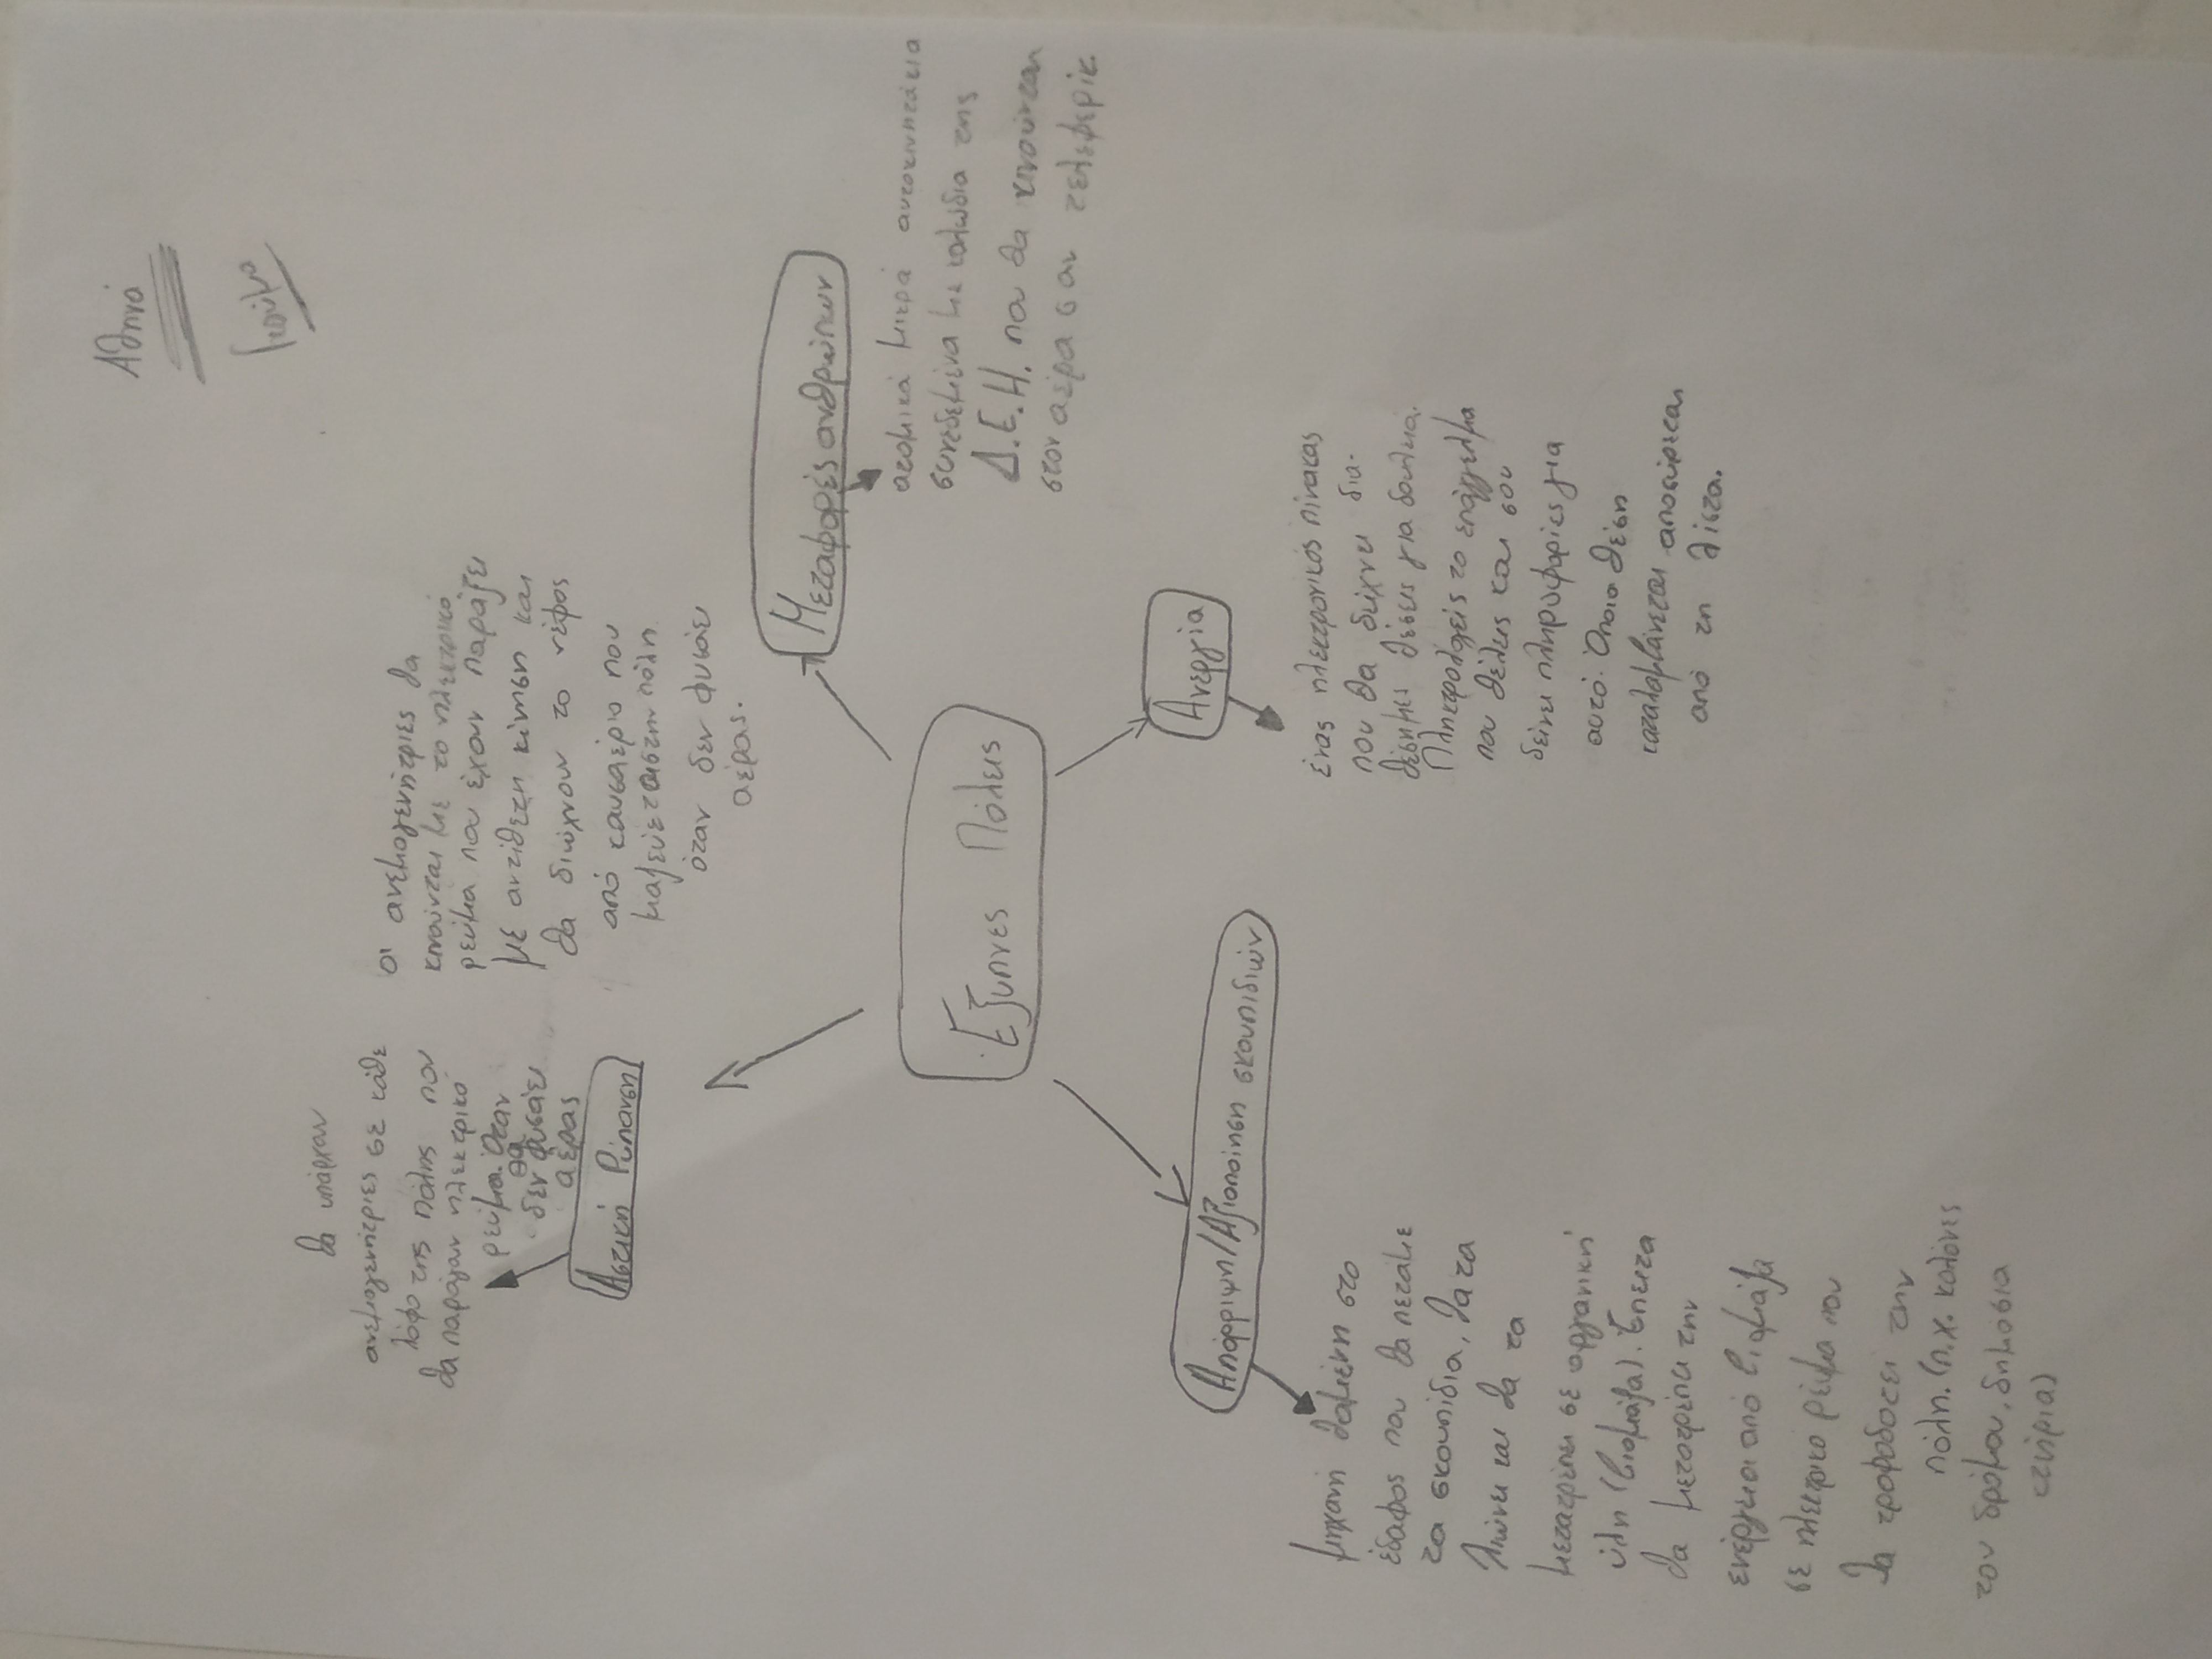 Αθηνά
θα υπάρχουν
ανεμογενήτριες σε κάθε
λόφο της πόλης που
θα παράγουν ηλεκτρικό
ρεύμα. Όταν
δεν θα φυσάει
αέρας
οι ανεμογενήτριες θα
κινούνται με το ηλεκτρικό
ρεύμα που έχουν παράξει
με αντίθετη κίνηση και
θα διώχνουν το νέφος
από καυσαέριο που
μαζεύεται στην πόλη
όταν δεν φυσάει
αέρας.
Αστική Ρύπανση
Μεταφορές ανθρώπων
ατομικά μικρά αυτοκινητάκια
συνεδεμένα με καλώδια της
Δ.Ε.Η. που θα κινούνται
στον αέρα σαν τελεφερίκ.
Έξυπνες Πόλεις
Απόρριψη/Αξιοποίηση σκουπιδιών
μηχανή θαμένη στο
έδαφος που θα πετάμε
τα σκουπίδια, θα τα
λιώνει και θα τα
μετατρέπει σε οργανική
ύλη (βιομάζα). Έπειτα
θα μετατρέπει την
ενέργεια από βιομάζα
σε ηλεκτρικό ρεύμα που
θα τροφοδοτεί την
πόλη. (π.χ. κολόνες
του δρόμου, δημόσια
κτήρια)
Ανεργία
ένας ηλεκτρονικός πίνακας
που θα δείχνει δια-
θέσημες θέσεις για δουλειά.
Πληκτρολογείς το επάγγελμα
που θέλεις και σου
δείνει πληροφορίες για
αυτό. Όποια θέση
καταλαμβάνεται αποσύρεται
από τη λίστα.